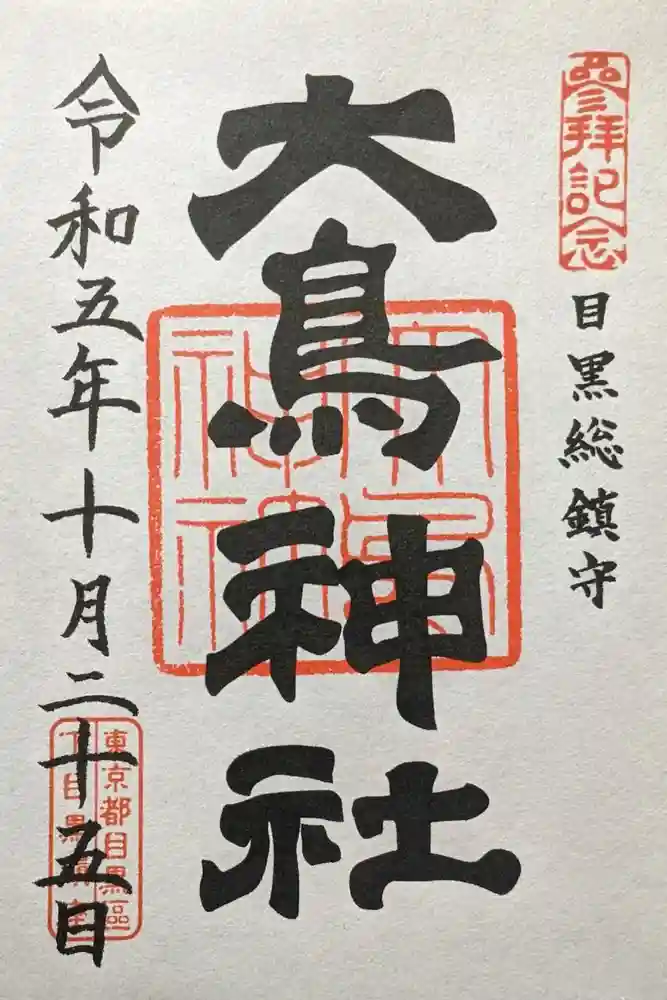 參拜記念
目黒総鎮守
大鳥神社
大鳥神社
令和五年十月二十五日
東京都目黒區
下目黒鎮座